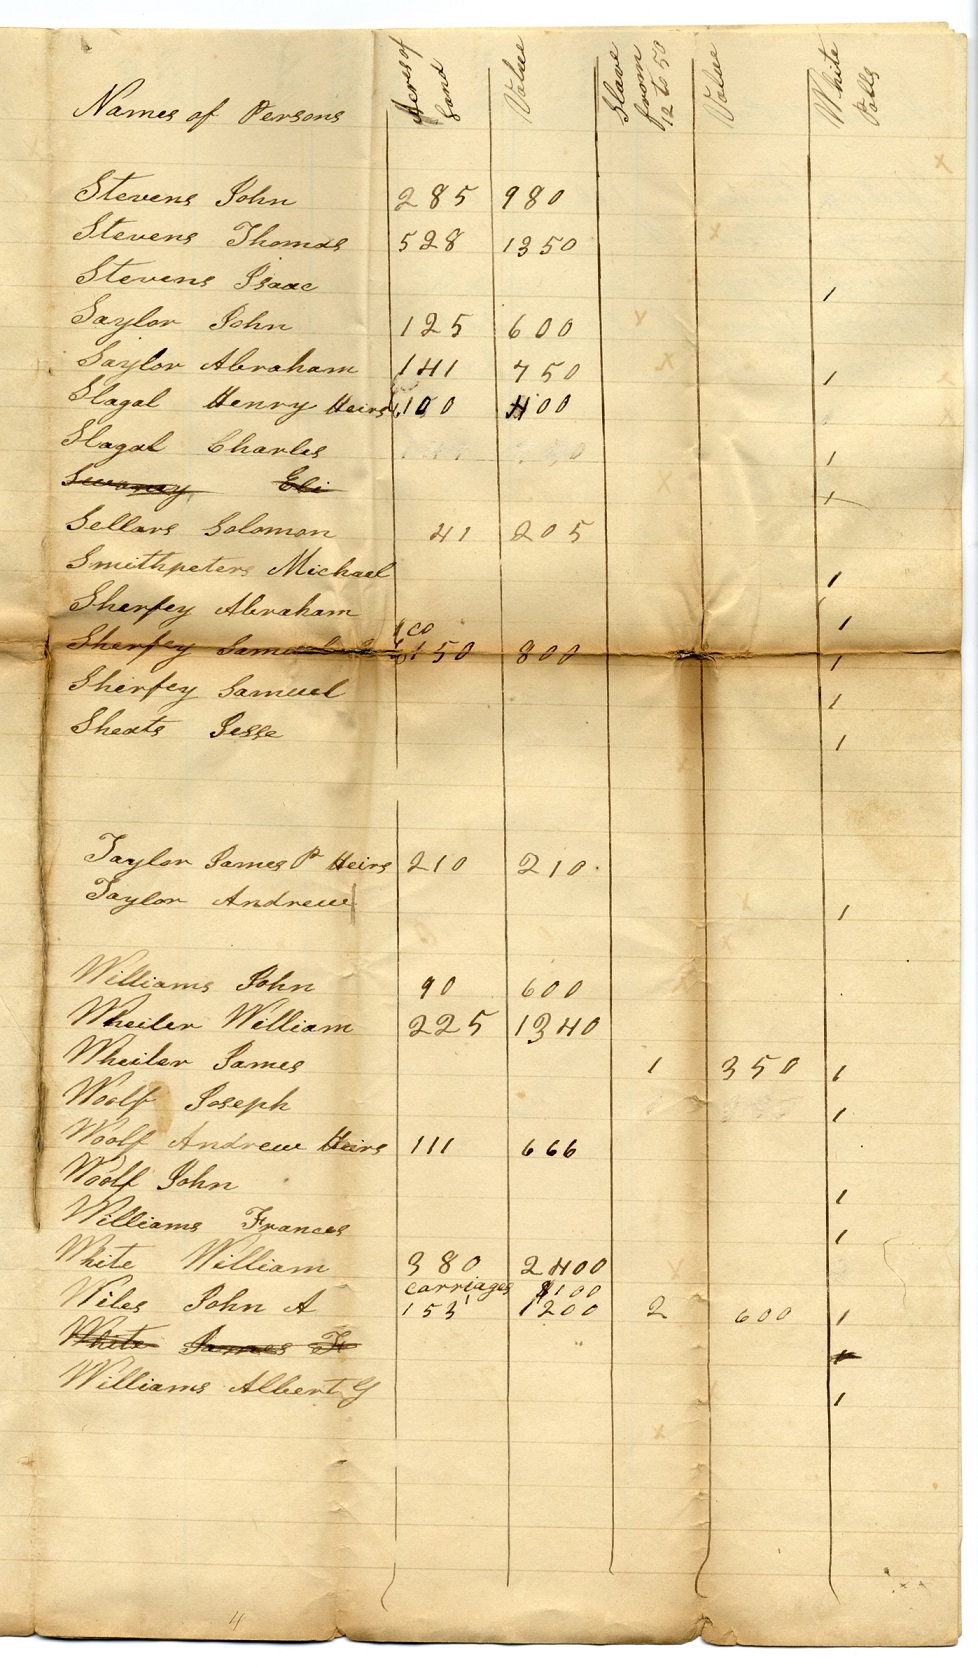 Names of Persons Acres of Land Value Slave from 12 to 50 Value White Polls
Stevens John 285 980
Stevens Thomas 528 1350
Stevens Isaac 1
Saylor John 125 600
Saylor Abraham 141 750 1
Slagal Henry Heirs 100 400
Slagal Charles 1
Eli 1
Sellars Solomon 41 205
Smithpeters Michael 1
Sherfey Abraham 1
Sherfey 150 800 1
Sherfey Samuel 1
Sheats Jesse 1
Taylor James P Heirs 210 210
Taylor Andrew 1
Williams John 90 600
Wheiler William 225 1340
Wheiler James 1 350 1
Woolf Joseph 1
Woolf Andrew Heirs 111 666
Woolf John 1
Williams Frances 1
White William 380 2400
carriages 1 $100
Wiles John A 153 1200 2 600 1
White James F 1
Williams Albert G 1
4